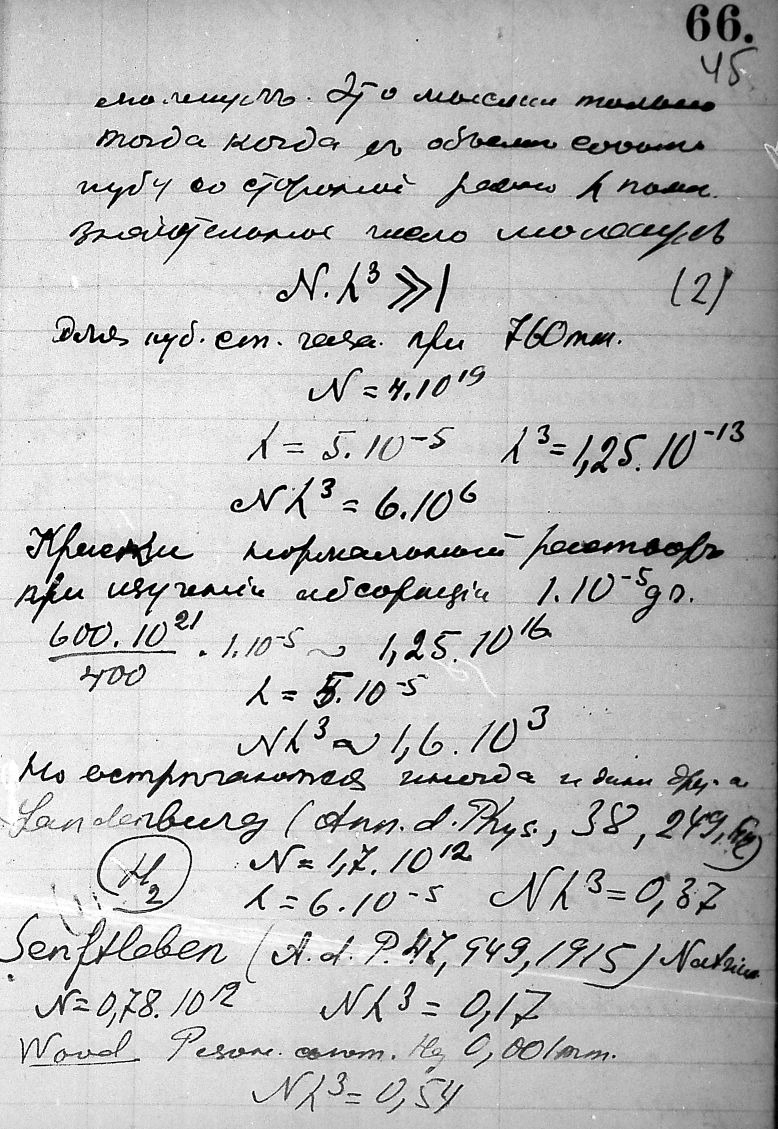 66.
45
молекулъ. Это мыслимо только
тогда когда въ объеме
кубу со стороной равно λ
значительное число молекулъ
N.λ³ ≫ 1 (2)
Для куб. ст. газа при 760mm.
N = 4.10¹⁹
λ = 5.10⁻⁵ λ³ = 1,25.10⁻¹³
Nλ³ = 6.10⁶
Краски нормальный растворъ
при изученіи абсорпціи 1.10⁻⁵ gr.
600.10²¹/400 . 1.10⁻⁵ ~ 1,25.10¹⁶
λ = 5.10⁻⁵
Nλ³ ~ 1,6.10³
Но встречаются иногда и
Landenburg (Ann. d. Phys., 38, 249,
H₂ N = 1,7.10¹²
λ = 6.10⁻⁵ Nλ³ = 0,37
Senftleben (A. d. P. 47, 949, 1915) Natrium
N = 0,78.10¹² Nλ³ = 0,17
Wood Резон. Hg 0,001mm.
Nλ³ = 0,54